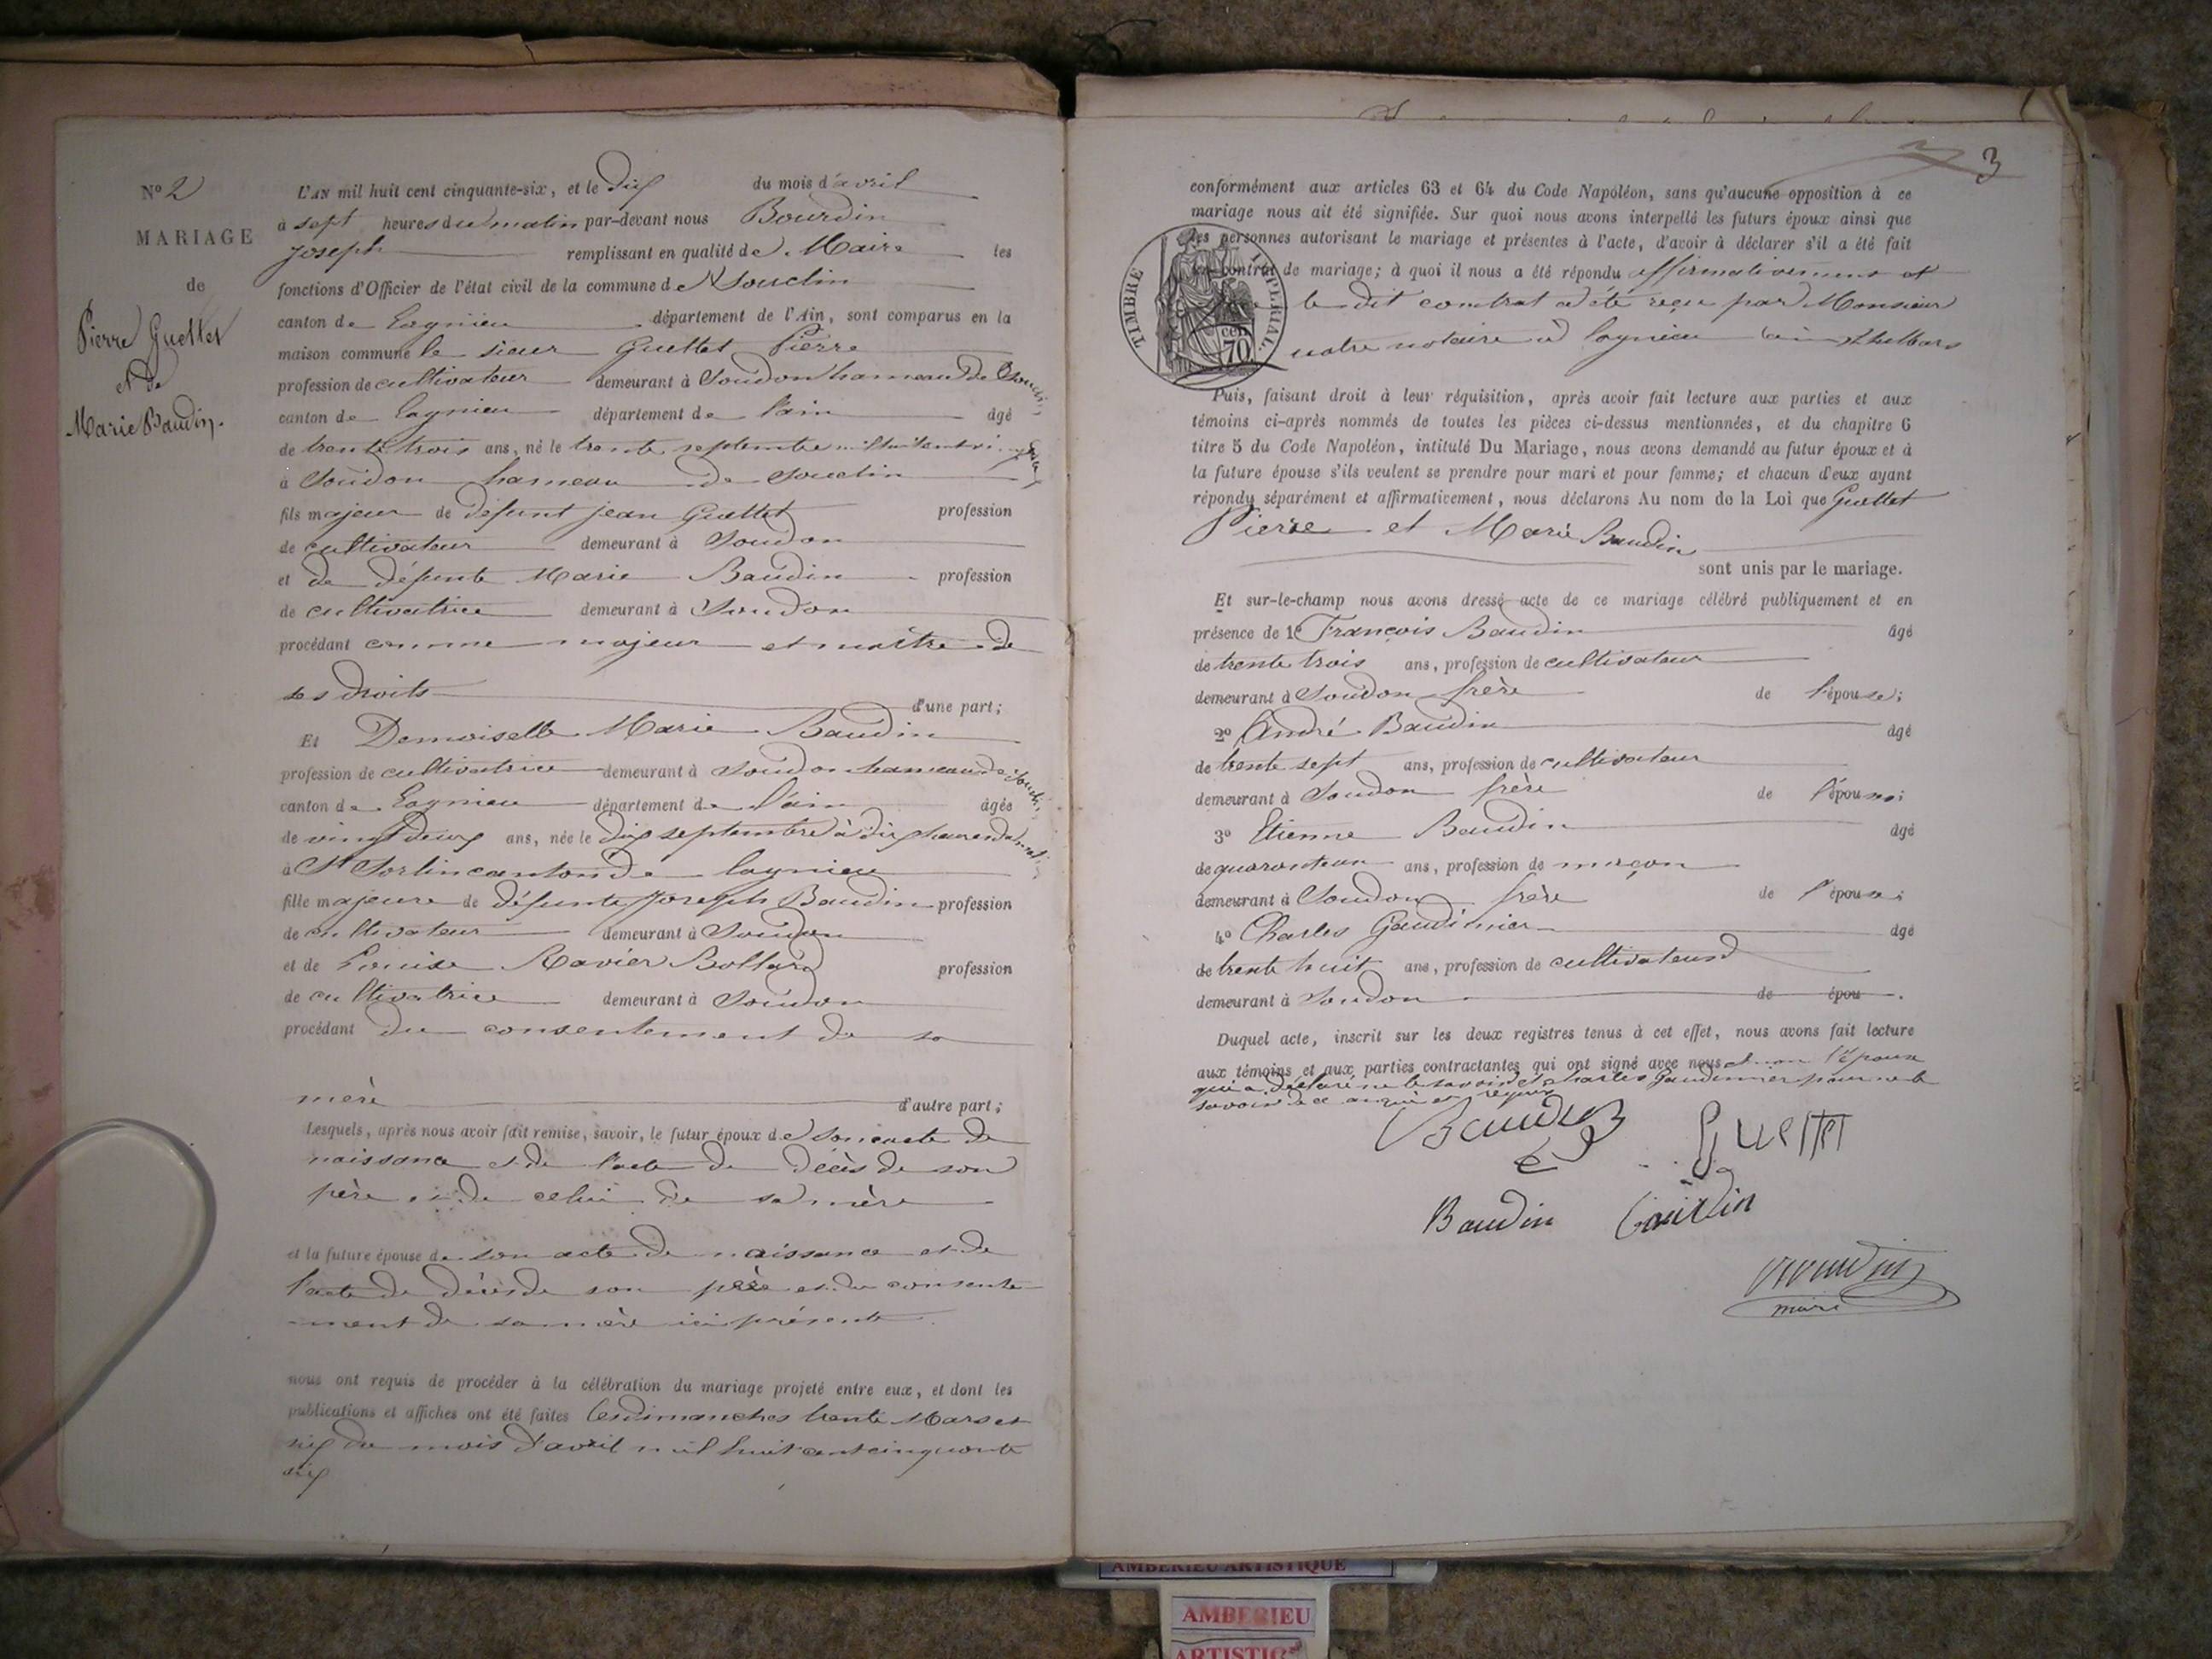 N° 2
MARIAGE
de
Pierre Guettet
et de
Marie Baudin.
L'AN mil huit cent cinquante-six, et le dix du mois d'avril
à sept heures du matin par-devant nous Bourdin
Joseph remplissant en qualité de Maire les
fonctions d'Officier de l'état civil de la commune de Souclin
canton de Lagnieu département de l'Ain, sont comparus en la
maison commune le sieur Guettet Pierre
profession de cultivateur demeurant à Soudon hameau de Souclin
canton de Lagnieu département de l'ain âgé
de trente trois ans, né le trente septembre mil huit cent vingt
à Soudon hameau de Souclin
fils majeur de défunt jean Guettet profession
de cultivateur demeurant à Soudon
et de défunte Marie Baudin profession
de cultivatrice demeurant à Soudon
procédant comme majeur et maître de
ses droits d'une part;
Et Demoiselle Marie Baudin
profession de cultivatrice demeurant à Soudon hameau de Souclin
canton de Lagnieu département de l'ain âgée
de vingt deux ans, née le dix septembre à dix heures du matin
à St Sorlin canton de lagnieu
fille majeure de défunte Joseph Baudin profession
de cultivateur demeurant à Soudon
et de Louise Ravier Bollard profession
de cultivatrice demeurant à Soudon
procédant du consentement de sa
mère d'autre part;
Lesquels, après nous avoir fait remise, savoir, le futur époux de son acte de
naissance et de l'acte de décès de son
père et de celui de sa mère
et la future épouse de son acte de naissance et de
l'acte de décès de son père et du consente-
-ment de sa mère ici présente
nous ont requis de procéder à la célébration du mariage projeté entre eux, et dont les
publications et affiches ont été faites les dimanches trente Mars et
six du mois d'avril mil huit cent cinquante
six
3
conformément aux articles 63 et 64 du Code Napoléon, sans qu'aucune opposition à ce
mariage nous ait été signifiée. Sur quoi nous avons interpellé les futurs époux ainsi que
les personnes autorisant le mariage et présentes à l'acte, d'avoir à déclarer s'il a été fait
un contrat de mariage; à quoi il nous a été répondu affirmativement et
le dit contrat a été reçu par Monsieur
notaire à lagnieu
TIMBRE IMPERIAL
cen
70
Puis, faisant droit à leur réquisition, après avoir fait lecture aux parties et aux
témoins ci-après nommés de toutes les pièces ci-dessus mentionnées, et du chapitre 6
titre 5 du Code Napoléon, intitulé Du Mariage, nous avons demandé au futur époux et à
la future épouse s'ils veulent se prendre pour mari et pour femme; et chacun d'eux ayant
répondu séparément et affirmativement, nous déclarons Au nom de la Loi que Guettet
Pierre et Marie Baudin
sont unis par le mariage.
Et sur-le-champ nous avons dressé acte de ce mariage célébré publiquement et en
présence de 1° François Baudin âgé
de trente trois ans, profession de cultivateur
demeurant à Soudon frère de l'épouse;
2° André Baudin âgé
de trente sept ans, profession de cultivateur
demeurant à Soudon frère de l'épouse;
3° Etienne Baudin âgé
de quarante un ans, profession de maçon
demeurant à Soudon frère de l'épouse;
4° Charles Gaudinier âgé
de trente huit ans, profession de cultivateur
demeurant à Soudon de épou .
Duquel acte, inscrit sur les deux registres tenus à cet effet, nous avons fait lecture
aux témoins et aux parties contractantes qui ont signé avec nous et non l'épouse
qui a déclaré ne le savoir et Charles Gaudinier pour ne le
savoir de ce requis
Baudin Guettet
Baudin Baudin
Bourdin
maire
AMBERIEU ARTISTIQUE
AMBERIEU
ARTISTIQ